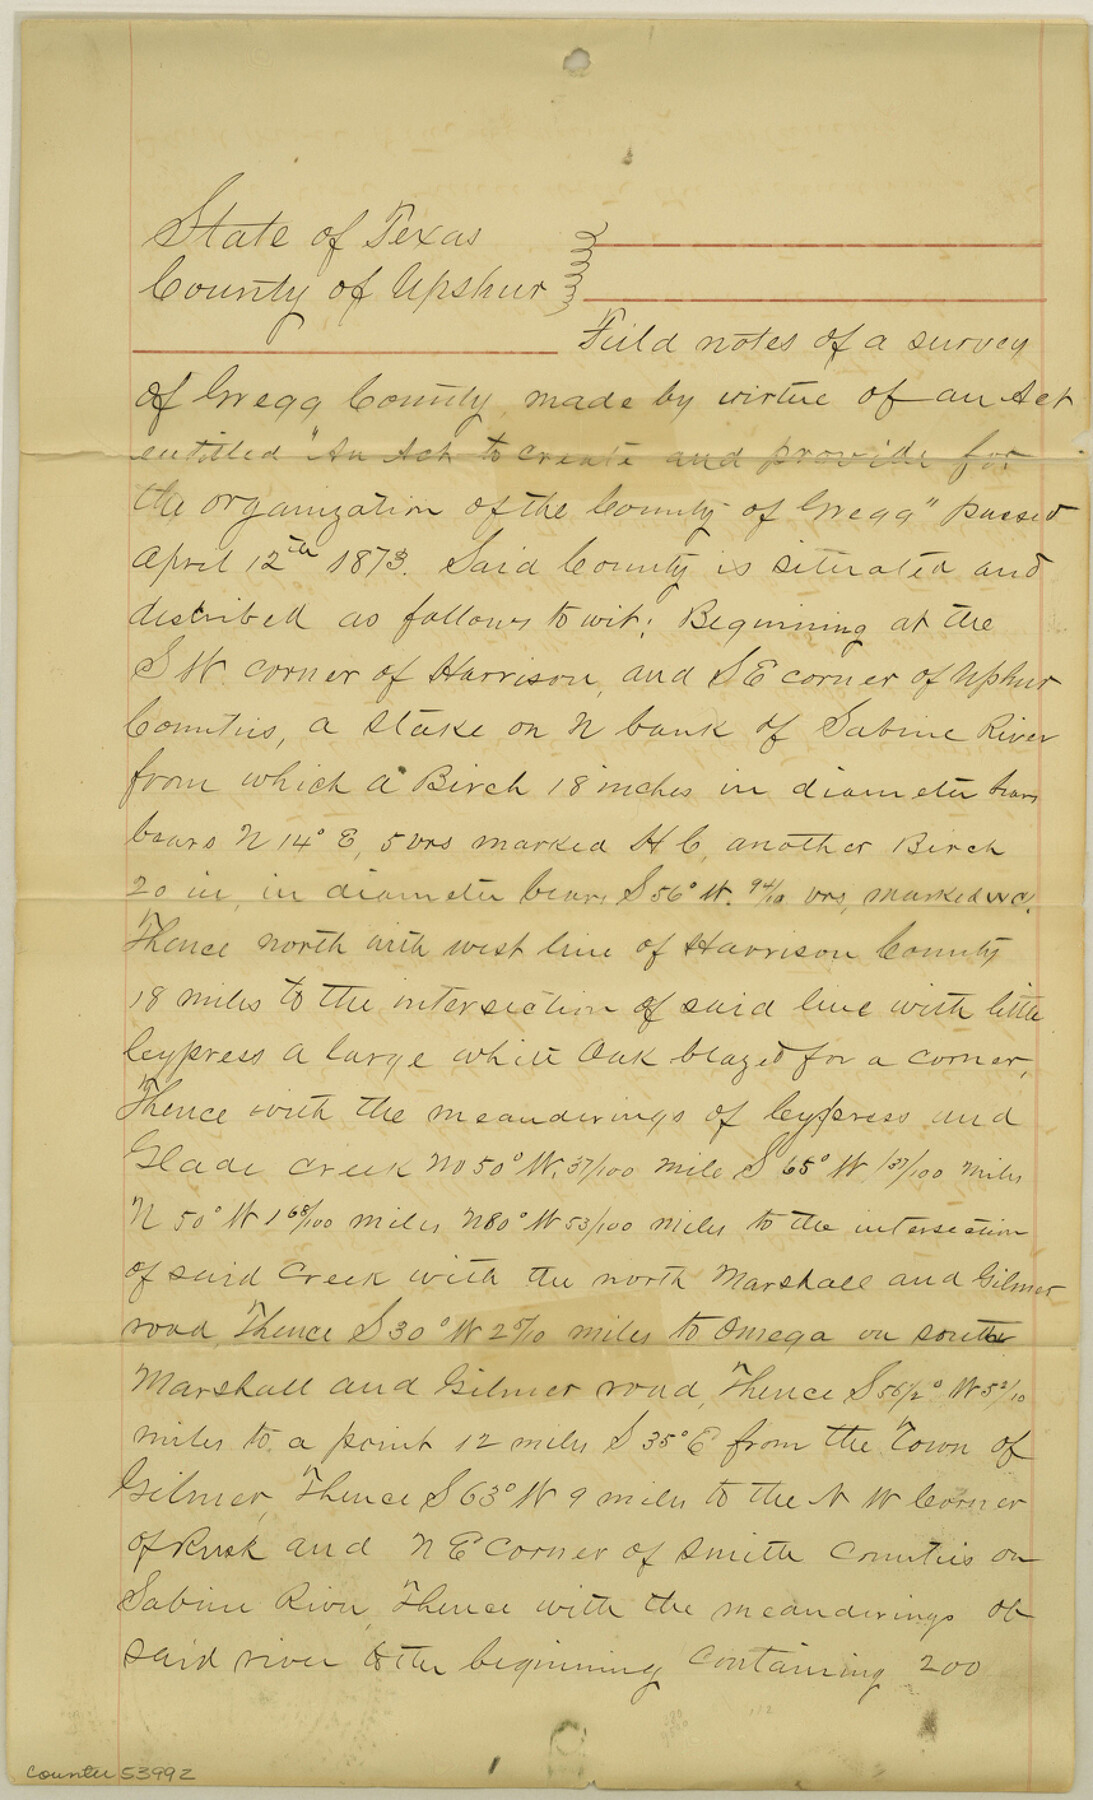 State of Texas
County of Upshur
Field notes of a survey
of Gregg County, made by virtue of an Act
entitled "An Act to create and provide for
the organization of the County of Gregg" passed
April 12th 1873. Said County is situated and
described as follows to wit; Beginning at the
S W. corner of Harrison, and S E corner of Upshur
Counties, a stake on N bank of Sabine River
from which a Birch 18 inches in diameter bears
bears N 14° E, 5 vrs marked H C, another Birch
20 in, in diameter bears S 56° W. 9 4/10 vrs, marked
Thence north with west line of Harrison County
18 miles to the intersection of said line with little
Cypress a large white Oak blazed for a corner,
Thence with the meanderings of Cypress and
Glade Creek No 50° W. 37/100 mile S 65° W 1 37/100 miles
N 50° W 1 68/100 miles N 80° W 53/100 miles to the intersection
of said Creek with the north Marshall and Gilmer
road, Thence S 30° W 2 /10 miles to Omega on south
Marshall and Gilmer road, Thence S 56 1/2° W 5 2/10
miles to a point 12 miles S 35° E from the Town of
Gilmer, Thence S 63° W 9 miles to the N W Corner
of Rusk and N E Corner of Smith Counties on
Sabine River, Thence with the meanderings of
said river to the beginning containing 200
112
1
counter 53992